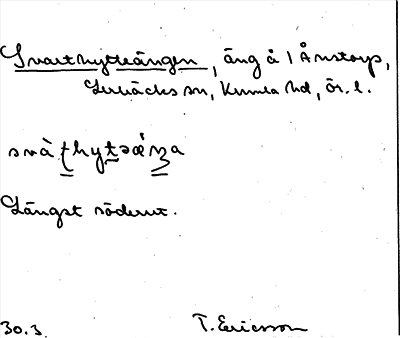 Svarthytteängen, äng å 1 Ånstorp,
Lerbäcks sn, Kumla hd, Ör. l.
svàṭhytəǽŋa
Längst söderut.
30.3. T. Ericsson